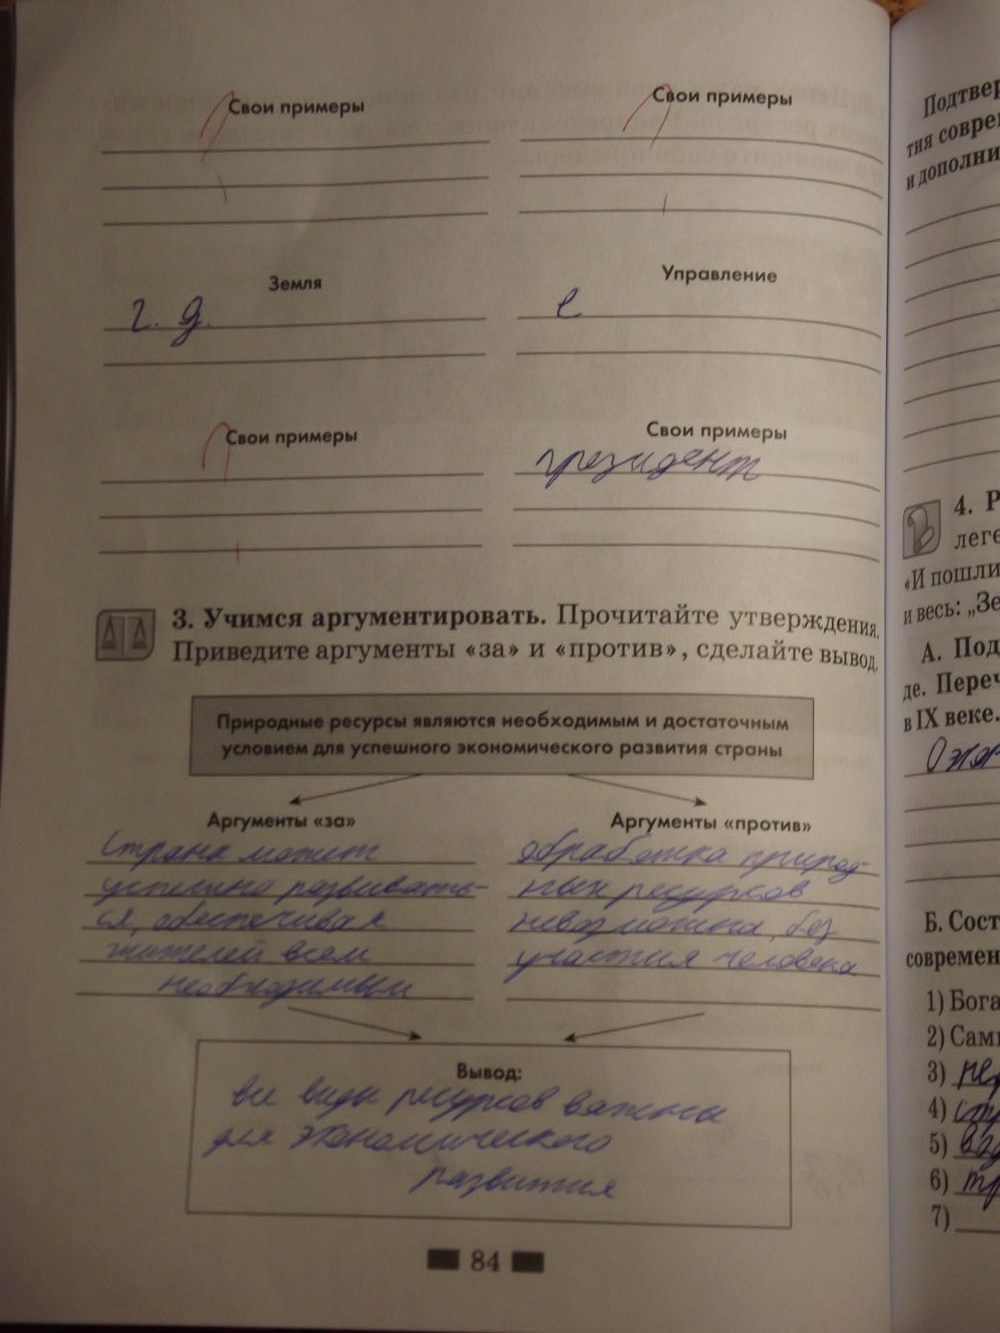 Свои примеры
Свои примеры
Земля
Управление
г. д.
е
Свои примеры
Свои примеры
президент
3. Учимся аргументировать. Прочитайте утверждения.
Приведите аргументы «за» и «против», сделайте вывод.
Природные ресурсы являются необходимым и достаточным
условием для успешного экономического развития страны
Аргументы «за»
Страна может
успешно развивать-
ся, обеспечивая
жителей всем
необходимым
Аргументы «против»
обработка природ-
ных ресурсов
невозможна без
участия человека
Вывод:
все виды ресурсов важны
для экономического
развития
84
Подтвер
тия соврем
и дополни
4. Р
леге
«И пошли
и весь: „Зе
А. Под
де. Переч
в IX веке.
Б. Сост
современ
1) Бога
2) Сами
3)
4)
5)
6)
7)